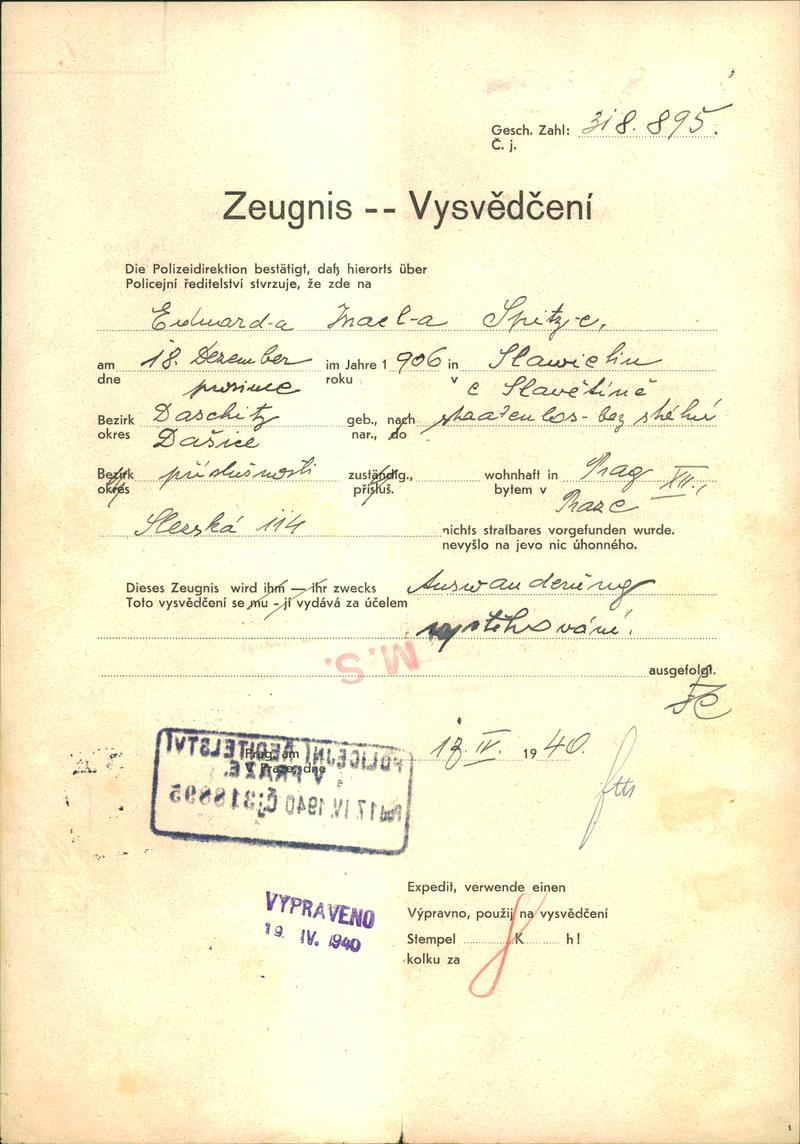 Gesch. Zahl: 318.895.
Č. j.
Zeugnis -- Vysvědčení
Die Polizeidirektion bestätigt, daß hierorts über
Policejní ředitelství stvrzuje, že zde na
Eduard-a Israel-a Spitz-e,
am 18. Dezember im Jahre 1 906 in Slawietin
dne prosince roku v e Slavětíně
Bezirk Daschitz geb., nach staatenlos - bez státní
okres Dašice nar., do
Bezirk příslušnosti zuständig., wohnhaft in Prag XII.,
okres přísluš. bytem v Praze
Slezská 114 nichts strafbares vorgefunden wurde.
nevyšlo na jevo nic úhonného.
Dieses Zeugnis wird ihm — ihr zwecks Auswanderung
Toto vysvědčení se mu - jí vydává za účelem
vystěhování.
M.S.
ausgefolgt.
Prag, am 18. IV. 1940.
V Praze, dne
POLICEJNÍ ŘEDITELSTVÍ
V PRAZE.
17. IV. 1940 Č.j. 318895
VYPRAVENO
19. IV. 1940
Expedit, verwende einen
Výpravno, použij na vysvědčení
Stempel K h!
kolku za 8